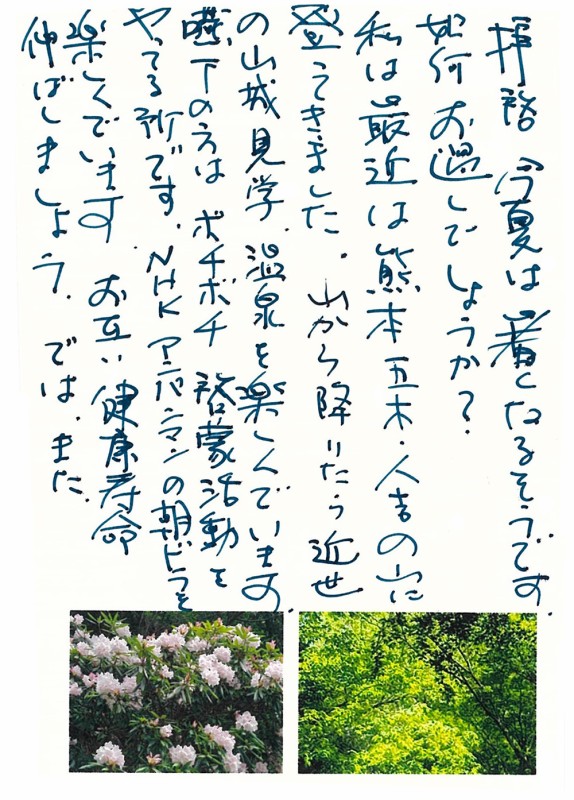 拝啓 今夏は暑くなるそうです。
如何お過しでしょうか?
私は最近は熊本五木・人吉の山に
登ってきました。山から降りたら近世
の山城見学 温泉を楽しくでいます。
嚥下の方は ボチボチ 啓蒙活動を
やってる所です。NHK アンパンマンの朝ドラを
楽しくでいます お互い健康寿命
伸ばしましょう。では、また。